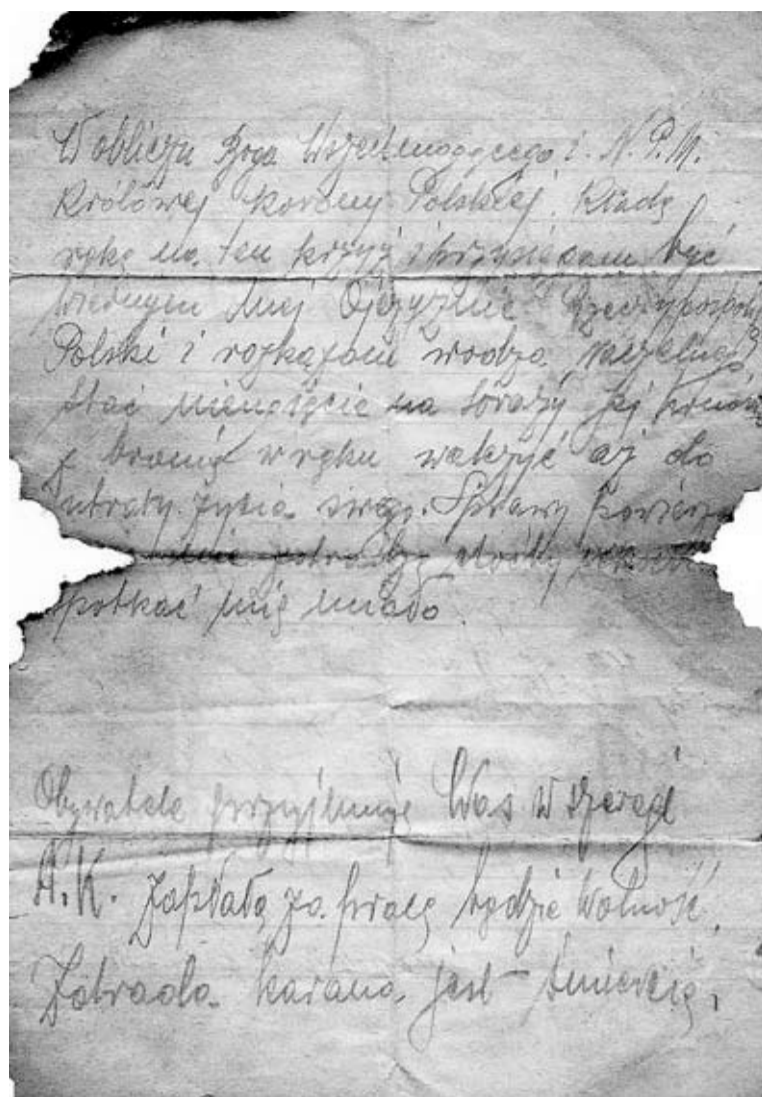 W obliczu Boga Wszechmogącego i N.P.M.
Królowej Korony Polskiej. Kładę
rękę na ten krzyż i przysięgam być
wiernym mej Ojczyźnie Rzeczypospoli
Polski i rozkazom wodza naczelnego
stać nieugięcie na straży jej honoru
z bronią w ręku walczyć aż do
utraty życia swego. Sprawy powierz
nie zdradzę choćby
spotkać mię miało.
Obywatele przyjmuję Was w szeregi
A.K. Zapłatą za pracę będzie wolność,
Zdrada karana jest śmiercią,